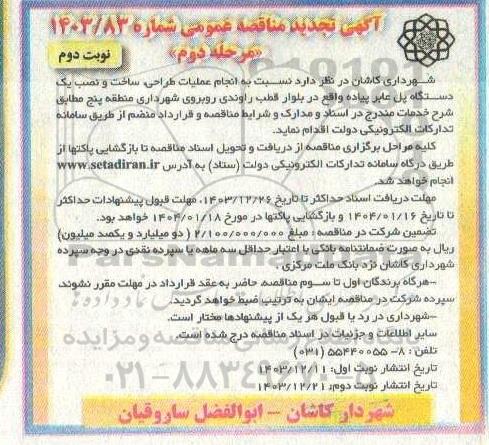 آگهی تجدید مناقصه عمومی شماره ۱۴۰۳/۸۳
«مرحله دوم»
نوبت دوم
شهرداری کاشان در نظر دارد نسبت به انجام عملیات طراحی، ساخت و نصب یک
دستگاه پل عابر پیاده واقع در بلوار قطب راوندی روبروی شهرداری منطقه پنج مطابق
شرح خدمات مندرج در اسناد و مدارک و شرایط مناقصه و قرارداد منضم از طریق سامانه
تدارکات الکترونیکی دولت اقدام نماید.
کلیه مراحل برگزاری مناقصه از دریافت و تحویل اسناد مناقصه تا بازگشایی پاکتها از
طریق درگاه سامانه تدارکات الکترونیکی دولت (ستاد) به آدرس www.setadiran.ir
انجام خواهد شد.
مهلت دریافت اسناد حداکثر تا تاریخ ۱۴۰۳/۱۲/۲۶، مهلت قبول پیشنهادات حداکثر
تا تاریخ ۱۴۰۴/۰۱/۱۶ و بازگشایی پاکتها در مورخ ۱۴۰۴/۰۱/۱۸ خواهد بود.
تضمین شرکت در مناقصه: مبلغ ۲/۱۰۰/۰۰۰/۰۰۰ (دو میلیارد و یکصد میلیون)
ریال به صورت ضمانتنامه بانکی با اعتبار حداقل سه ماهه یا سپرده نقدی در وجه سپرده
شهرداری کاشان نزد بانک ملت مرکزی
-هرگاه برندگان اول تا سوم مناقصه، حاضر به عقد قرارداد در مهلت مقرر نشوند،
سپرده شرکت در مناقصه ایشان به ترتیب ضبط خواهد گردید.
-شهرداری در رد یا قبول هر یک از پیشنهادها مختار است.
سایر اطلاعات و جزئیات در اسناد مناقصه درج شده است.
تلفن: ۸- ۵۵۴۴۰۰۵۵ (۰۳۱)
تاریخ انتشار نوبت اول: ۱۴۰۳/۱۲/۱۱
تاریخ انتشار نوبت دوم: ۱۴۰۳/۱۲/۲۱
شهردار کاشان – ابوالفضل ساروقیان